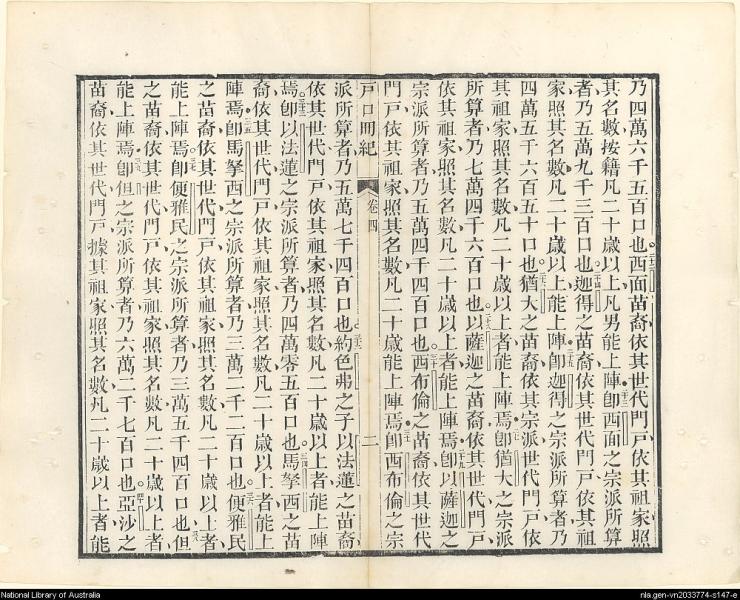 乃四萬六千五百口也。西面苗裔依其世代門戶依其祖家照
其名數按籍凡二十歲以上凡男能上陣即西面之宗派所算
者乃五萬九千三百口也。迦得之苗裔依其世代門戶依其祖
家照其名數凡二十歲以上能上陣即迦得之宗派所算者乃
四萬五千六百五十口也。猶大之苗裔依其宗派世代門戶依
其祖家照其名數凡二十歲以上者能上陣焉即猶大之宗派
所算者乃七萬四千六百口也。以薩迦之苗裔依其世代門戶
依其祖家照其名數凡二十歲以上者能上陣焉即以薩迦之
宗派所算者乃五萬四千四百口也。西布倫之苗裔依其世代
門戶依其祖家照其名數凡二十歲能上陣焉即西布倫之宗
戶口冊紀 卷四 二
派所算者乃五萬七千四百口也。約色弗之子以法蓮之苗裔
依其世代門戶依其祖家照其名數凡二十歲以上者能上陣
焉。即以法蓮之宗派所算者乃四萬零五百口也。馬拏西之苗
裔依其世代門戶依其祖家照其名數凡二十歲以上者能上
陣焉即馬拏西之宗派所算者乃三萬二千二百口也。便雅民
之苗裔依其世代門戶依其祖家照其名數凡二十歲以上者
能上陣焉。即便雅民之宗派所算者乃三萬五千四百口也但
之苗裔依其世代門戶依其祖家照其名數凡二十歲以上者
能上陣焉即但之宗派所算者乃六萬二千七百口也。亞沙之
苗裔依其世代門戶據其祖家照其名數凡二十歲以上者能
National Library of Australia
nla.gen-vn2033774-s147-e